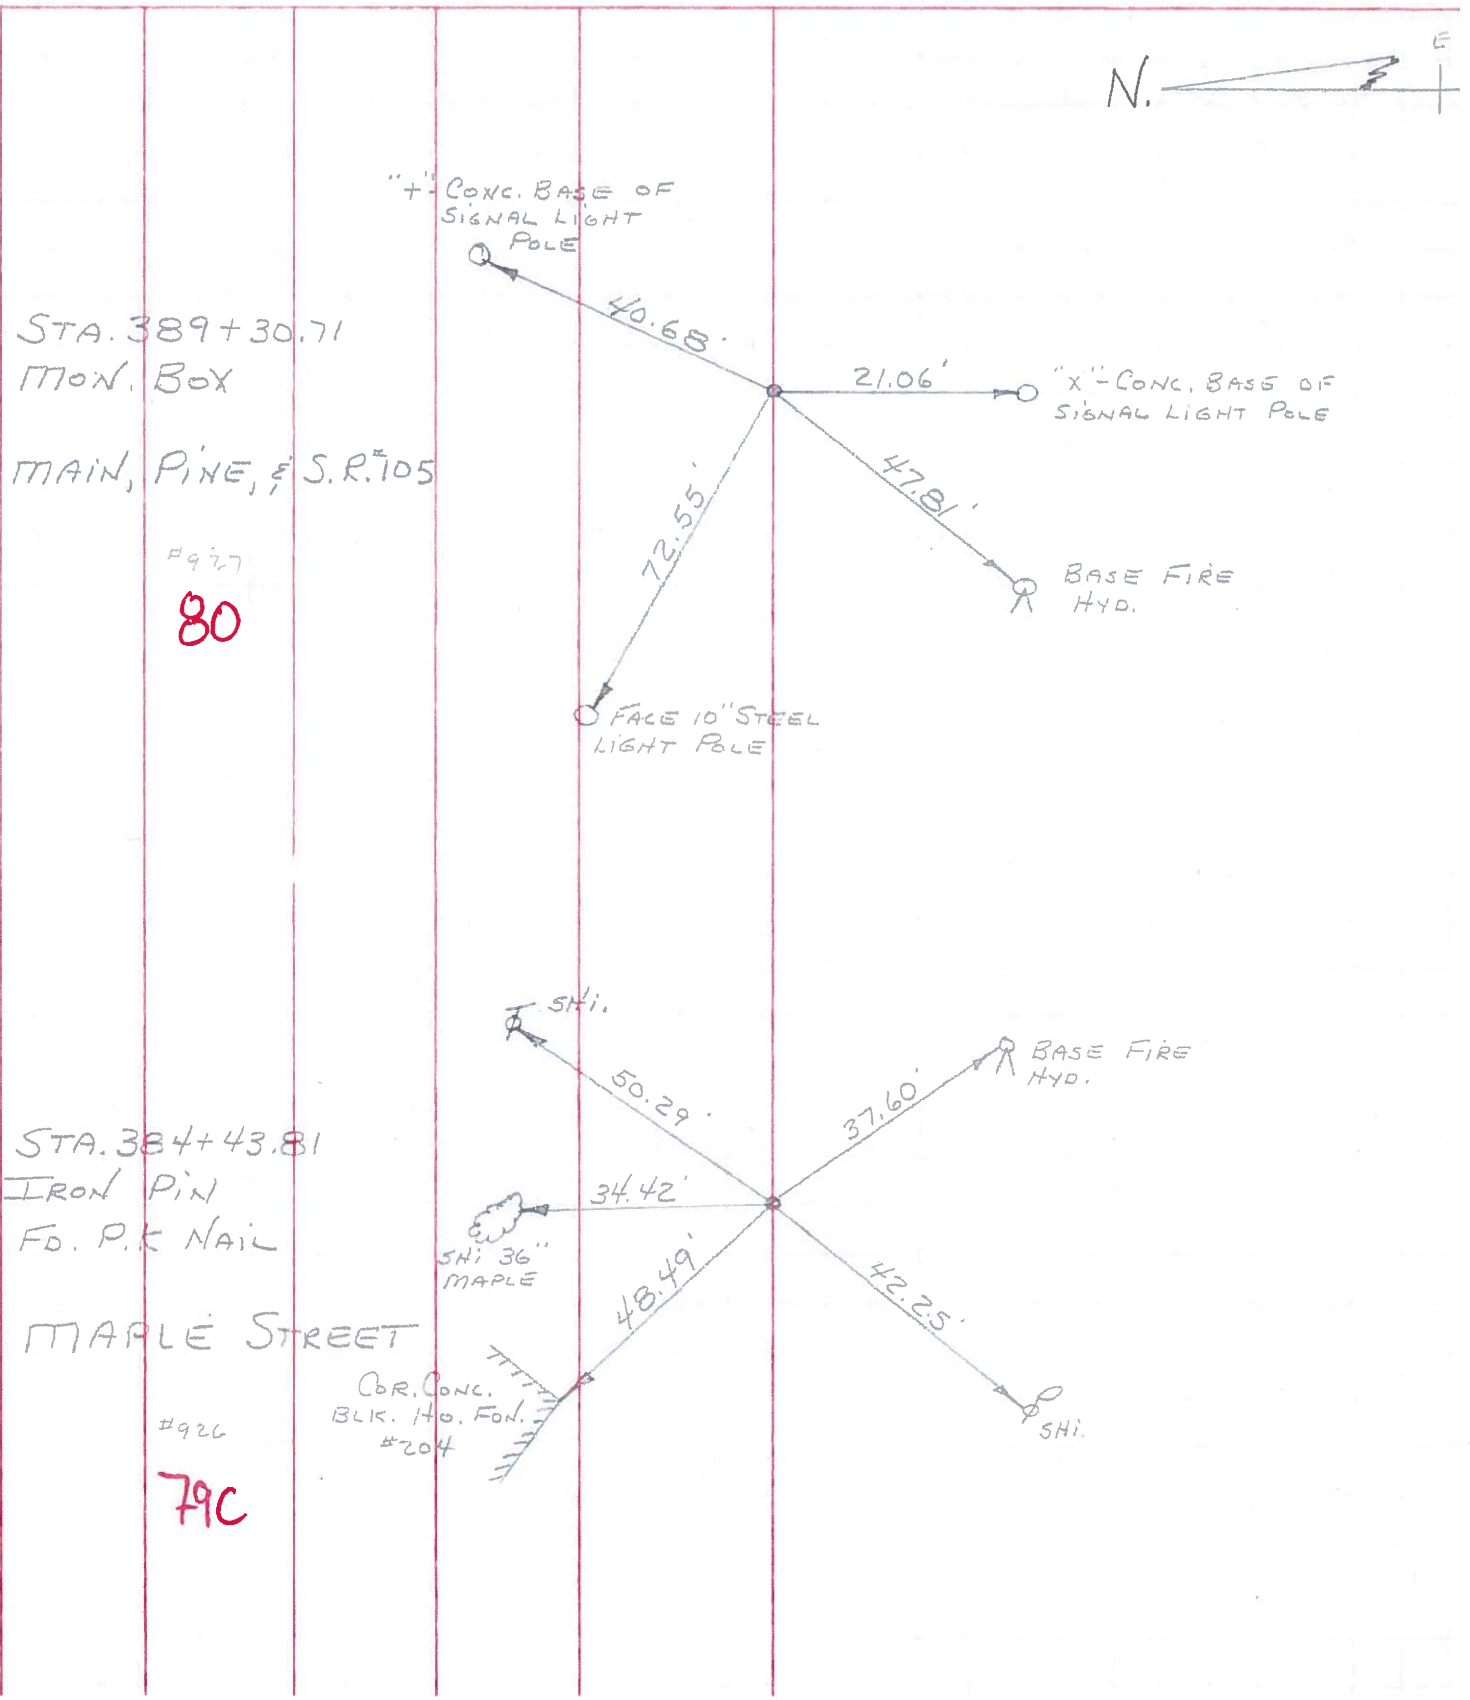 N.
E
"+"-CONC. BASE OF
SIGNAL LIGHT
POLE
40.68'
STA. 389+30.71
MON. BOX
21.06'
"X"-CONC. BASE OF
SIGNAL LIGHT POLE
MAIN, PINE, & S.R.#105
47.81'
72.55'
#927
80
BASE FIRE
HYD.
FACE 10" STEEL
LIGHT POLE
SHI.
50.29'
37.60'
BASE FIRE
HYD.
STA. 384+43.81
IRON PIN
FD. P.K NAIL
34.42'
SHI 36"
MAPLE
48.49'
42.25'
MAPLE STREET
COR. CONC.
BLK. HO. FDN.
#204
SHI.
#926
79C